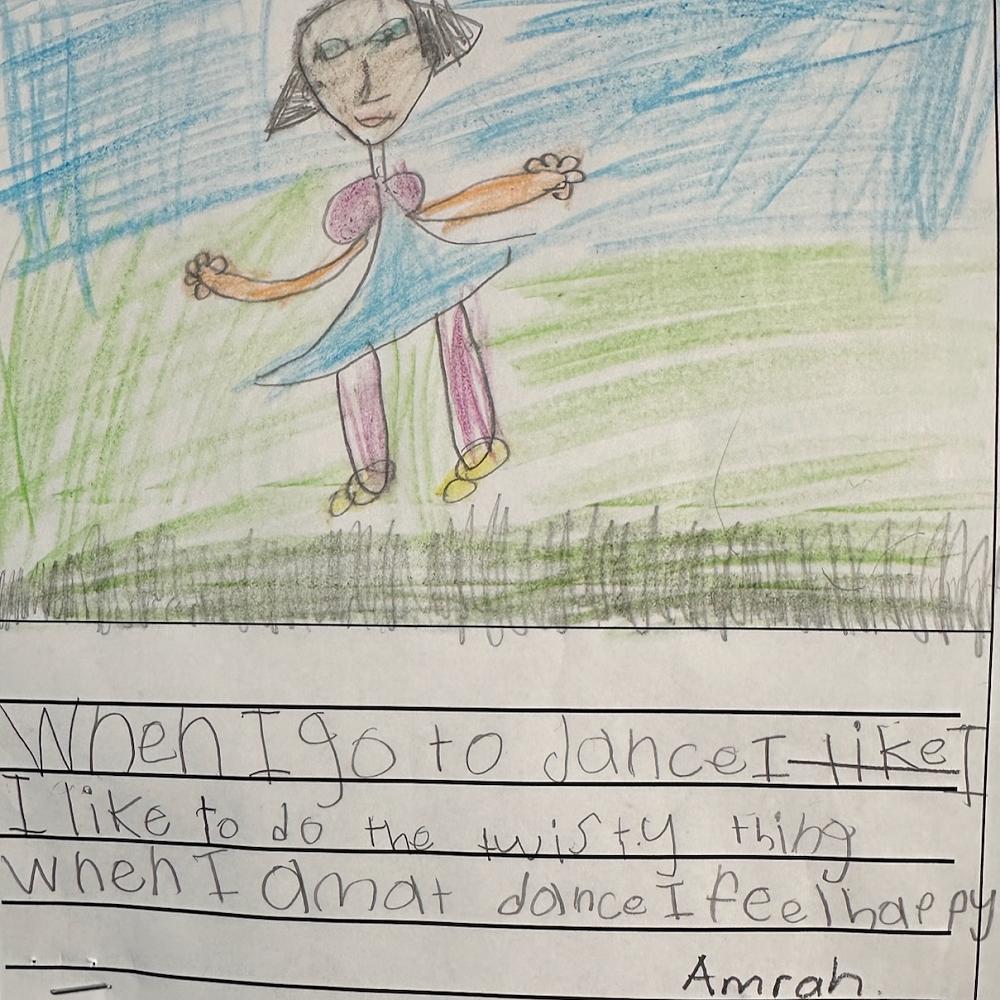 When I go to dance I like I
I like to do the twisty thing
when I am at dance I feel happy
Amrah.